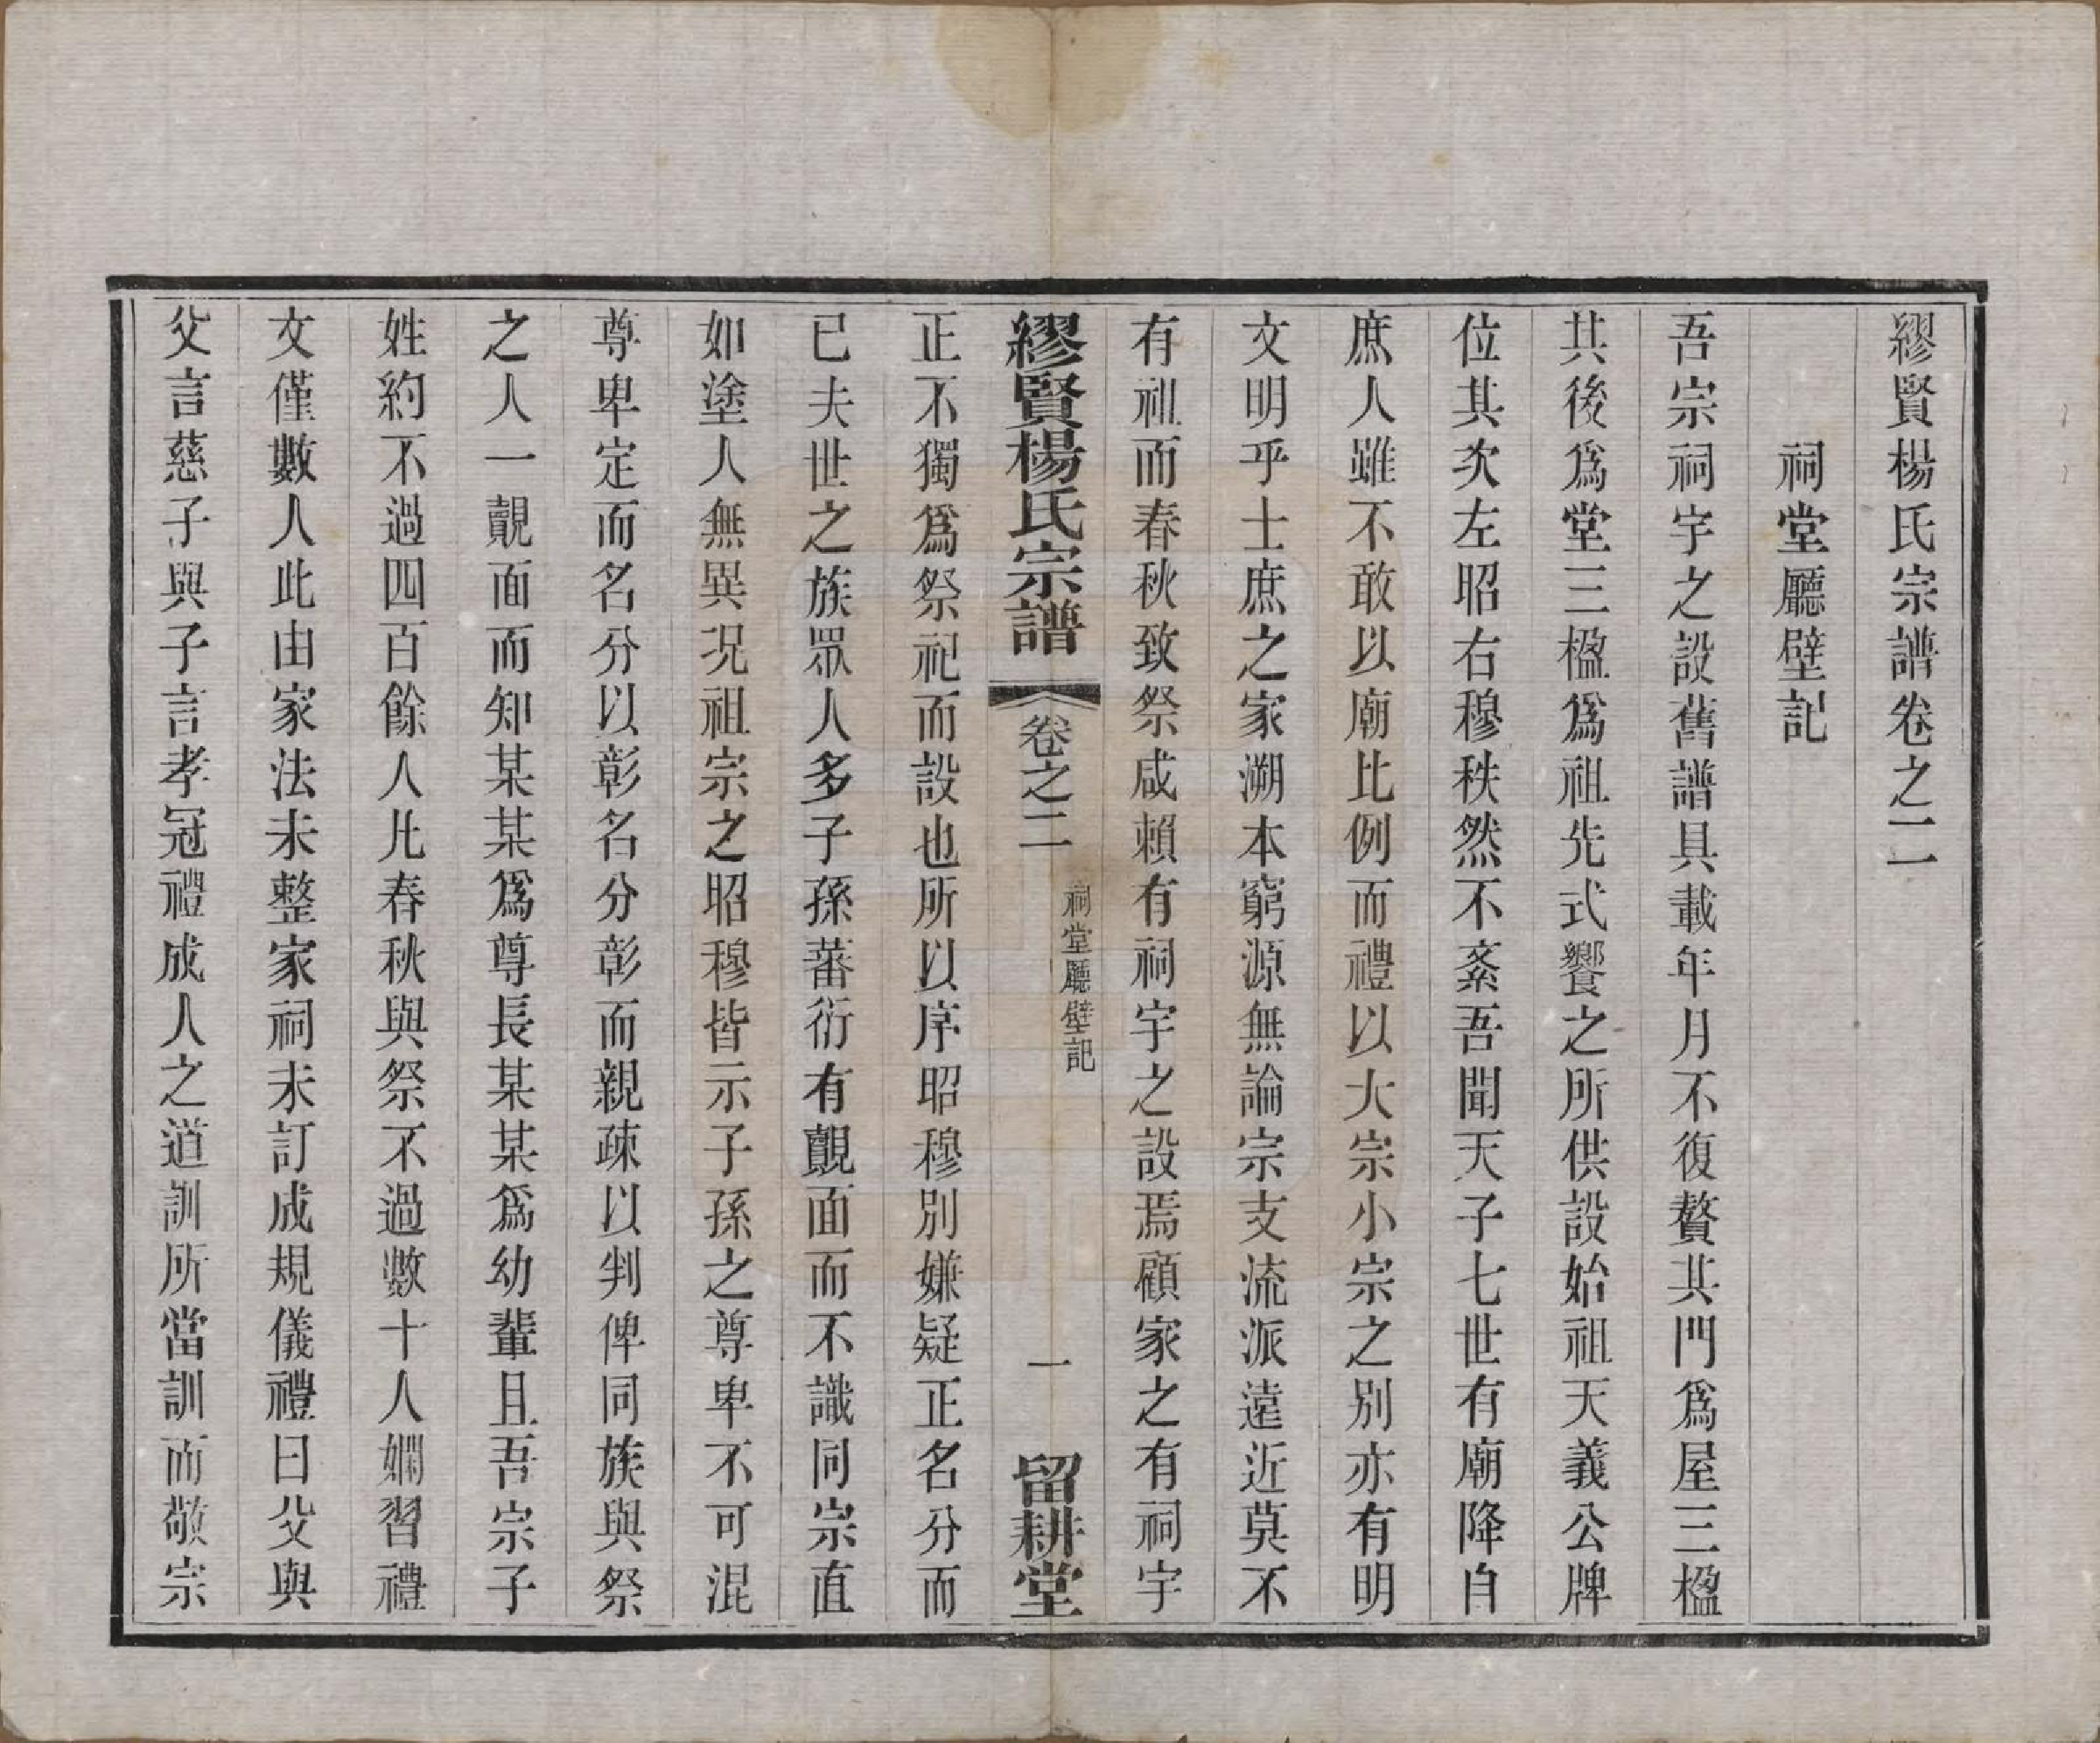 繆賢楊氏宗譜卷之二
祠堂廳壁記
吾宗祠宇之設舊譜具載年月不復贅其門爲屋三楹
其後爲堂三楹爲祖先式饗之所供設始祖天義公牌
位其次左昭右穆秩然不紊吾聞天子七世有廟降自
庶人雖不敢以廟比例而禮以大宗小宗之別亦有明
文明乎士庶之家溯本窮源無論宗支流派遠近莫不
有祖而春秋致祭咸賴有祠宇之設焉顧家之有祠宇
繆賢楊氏宗譜 卷之二 祠堂廳壁記 一 留耕堂
正不獨爲祭祀而設也所以序昭穆別嫌疑正名分而
已夫世之族眾人多子孫蕃衍有覿面而不識同宗直
如塗人無異況祖宗之昭穆皆示子孫之尊卑不可混
尊卑定而名分以彰名分彰而親疎以判俾同族與祭
之人一覿面而知某某爲尊長某某爲幼輩且吾宗子
姓約不過四百餘人凡春秋與祭不過數十人嫻習禮
文僅數人此由家法未整家祠未訂成規儀禮曰父與
父言慈子與子言孝冠禮成人之道訓所當訓而敬宗